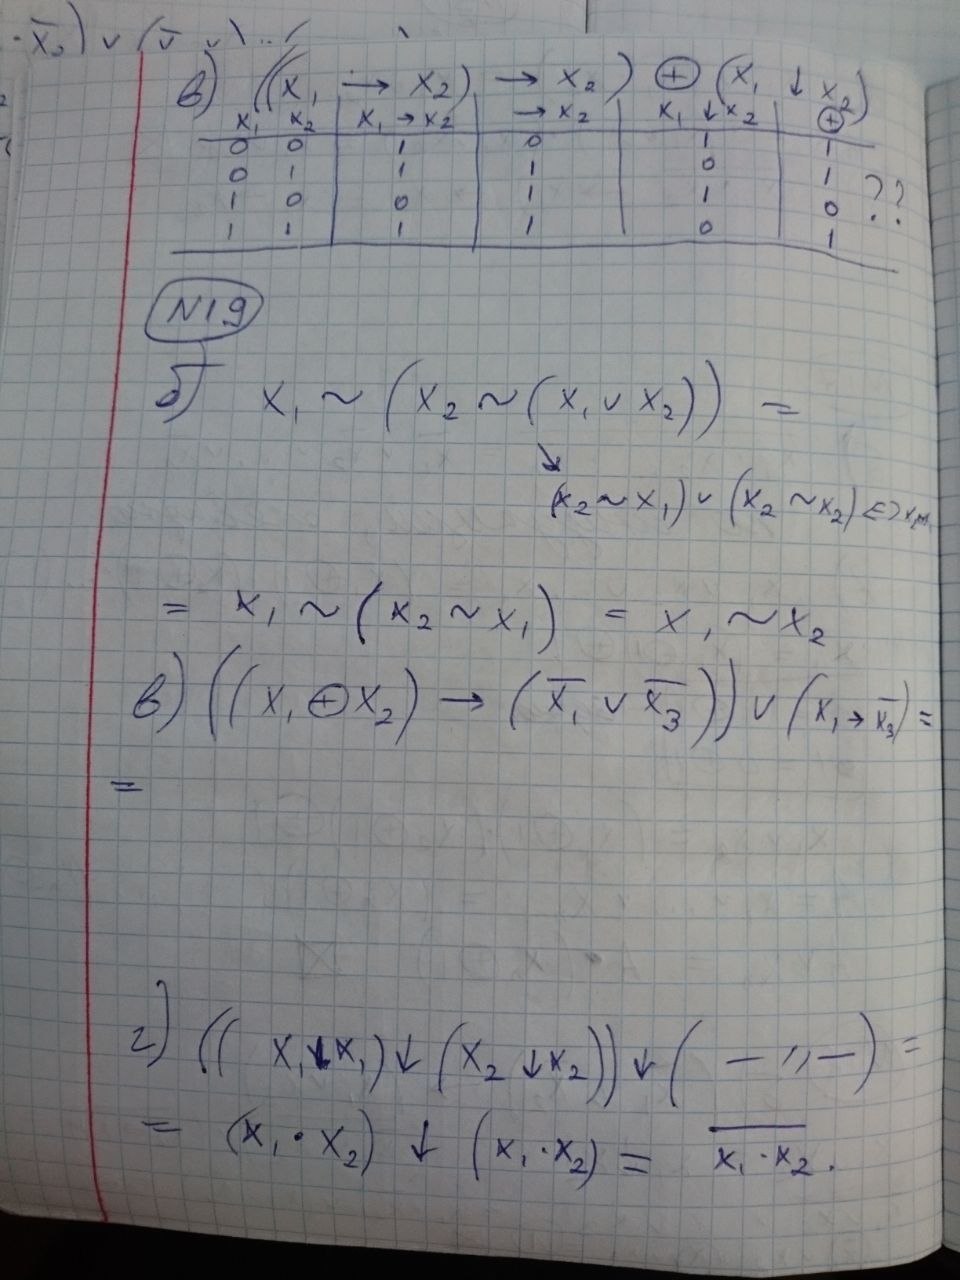 в) ((x₁ → x₂) → x₂) ⊕ (x₁ ↓ x₂)
x₁ x₂ | x₁ → x₂ | → x₂ | x₁ ↓ x₂ | ⊕
0 0 | 1 | 0 | 1 | 1
0 1 | 1 | 1 | 0 | 1 ??
1 0 | 0 | 1 | 1 | 0
1 1 | 1 | 1 | 0 | 1
N19
б) x₁ ~ (x₂ ~ (x₁ ∨ x₂)) =
↘
(x₂ ~ x₁) ∨ (x₂ ~ x₂) <=>
= x₁ ~ (x₂ ~ x₁) = x₁ ~ x₂
в) ((x₁ ⊕ x₂) → (x̅₁ ∨ x̅₃)) ∨ (x₁ → x̅₃) =
=
г) ((x₁ ↓ x₁) ↓ (x₂ ↓ x₂)) ↓ ( — ,, — ) =
= (x₁ · x₂) ↓ (x₁ · x₂) = \overline{x₁ · x₂}.